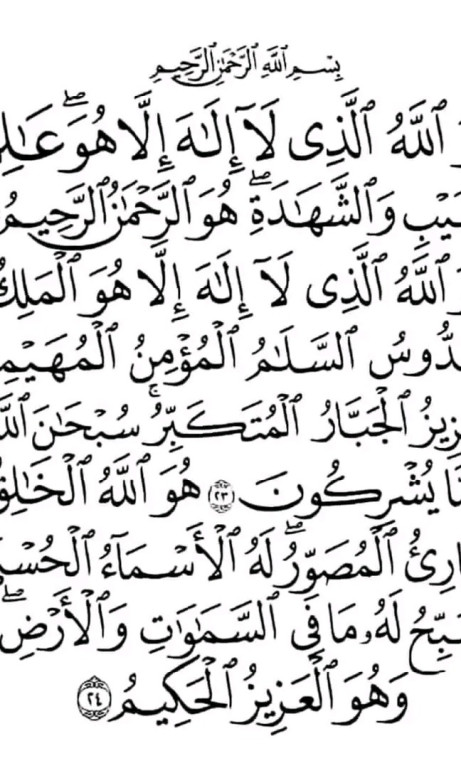 بِسْمِ ٱللَّهِ ٱلرَّحْمَٰنِ ٱلرَّحِيمِ
ٱللَّهُ ٱلَّذِى لَآ إِلَٰهَ إِلَّا هُوَ ۖ عَٰلِ
يْبِ وَٱلشَّهَٰدَةِ ۖ هُوَ ٱلرَّحْمَٰنُ ٱلرَّحِيمُ
ٱللَّهُ ٱلَّذِى لَآ إِلَٰهَ إِلَّا هُوَ ٱلْمَلِكُ
دُّوسُ ٱلسَّلَٰمُ ٱلْمُؤْمِنُ ٱلْمُهَيْمِ
زِيزُ ٱلْجَبَّارُ ٱلْمُتَكَبِّرُ ۚ سُبْحَٰنَ ٱللَّ
يُشْرِكُونَ ٢٣ هُوَ ٱللَّهُ ٱلْخَٰلِقُ
ارِئُ ٱلْمُصَوِّرُ ۖ لَهُ ٱلْأَسْمَآءُ ٱلْحُسْ
بِّحُ لَهُۥ مَا فِى ٱلسَّمَٰوَٰتِ وَٱلْأَرْضِ ۖ
وَهُوَ ٱلْعَزِيزُ ٱلْحَكِيمُ ٢٤